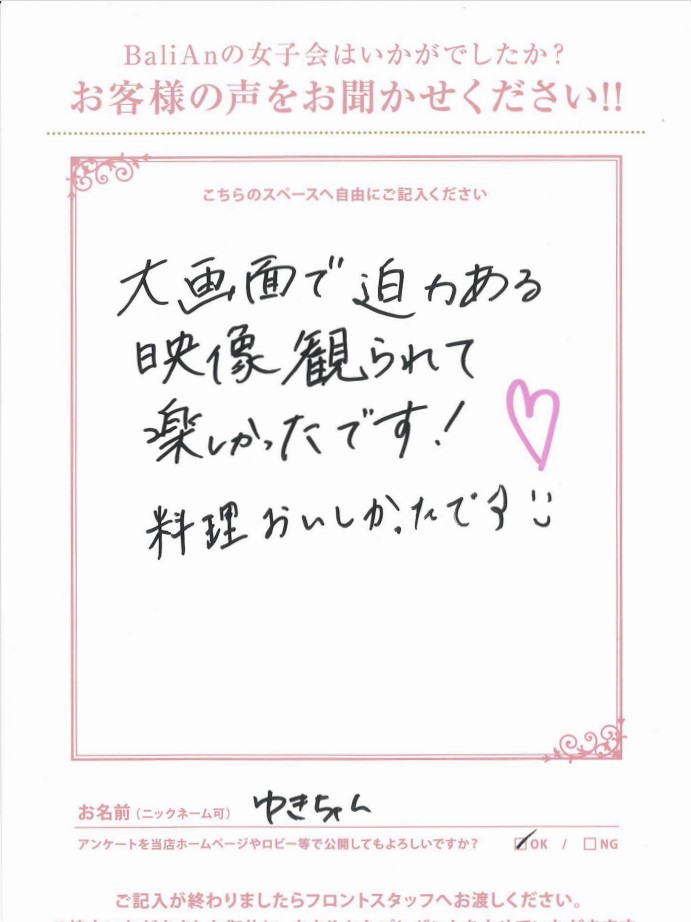 BaliAnの女子会はいかがでしたか?
お客様の声をお聞かせください!!
こちらのスペースへ自由にご記入ください
大画面で迫力ある
映像観られて
楽しかったです!
料理おいしかったです
お名前(ニックネーム可) ゆきちゃん
アンケートを当店ホームページやロビー等で公開してもよろしいですか? OK / NG
ご記入が終わりましたらフロントスタッフへお渡しください。